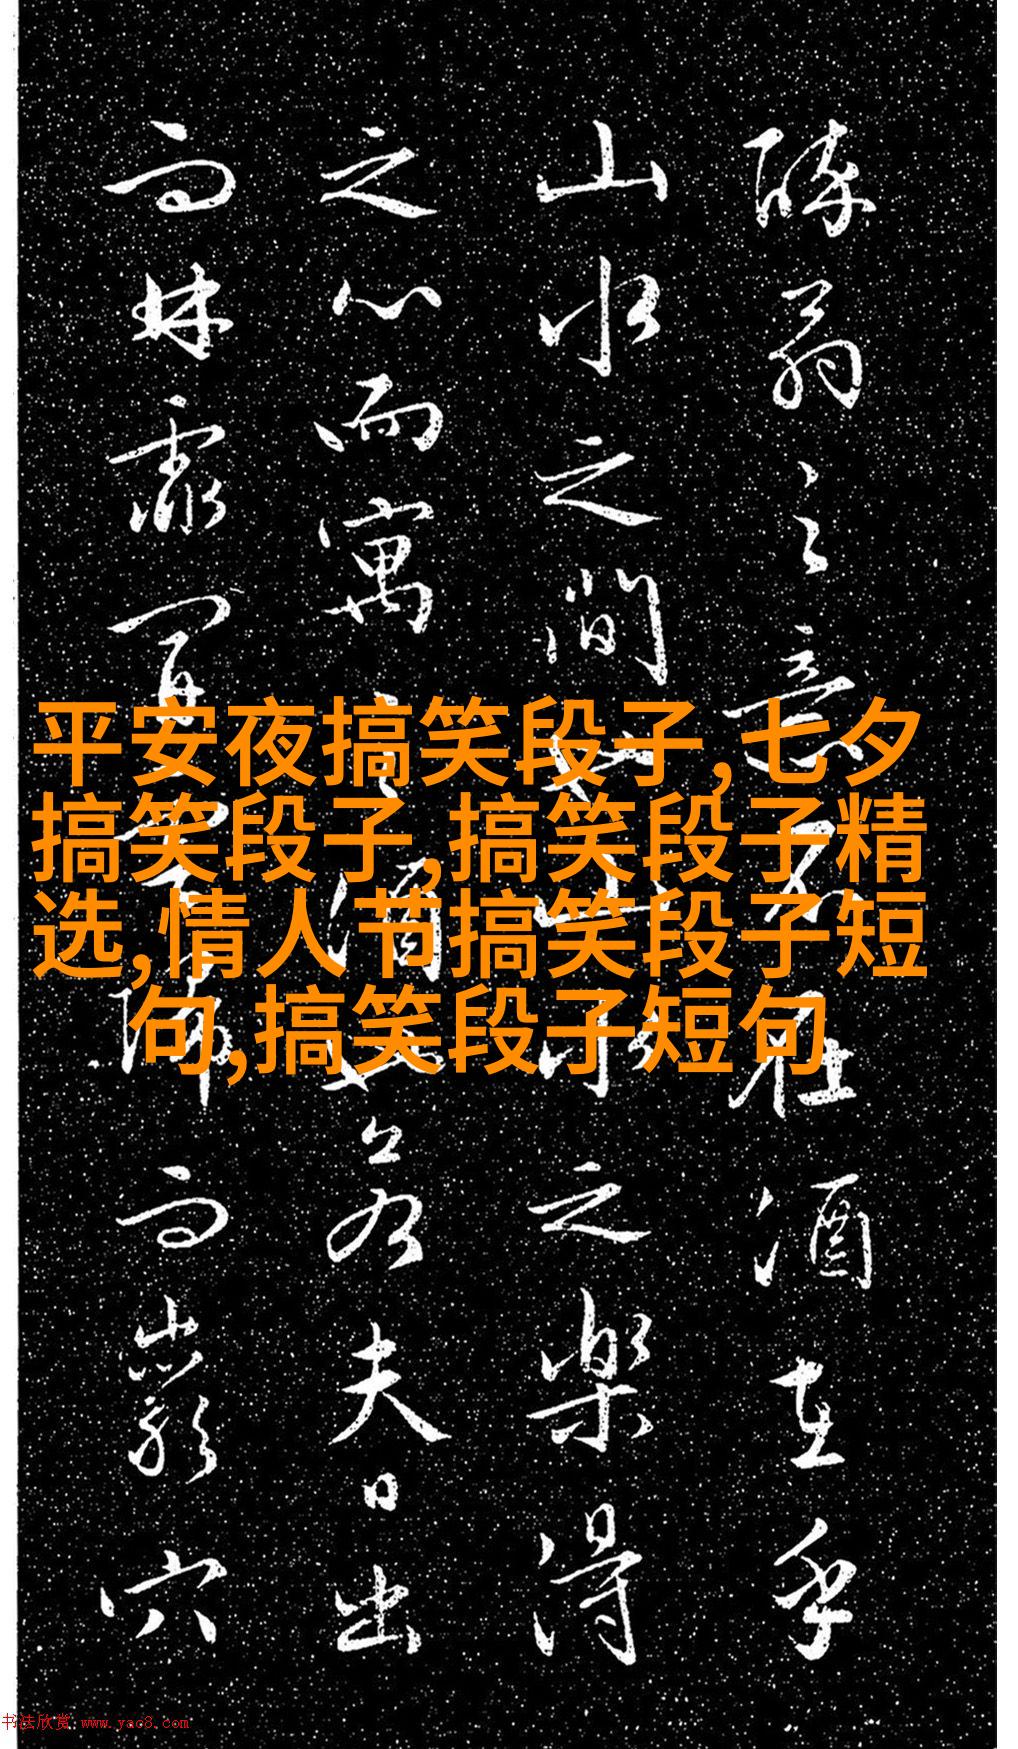 醉翁之意不在酒在乎
山水之間也山水之樂得
之心而寓之酒也若夫日出
而林霏開雲歸而巖穴
平安夜搞笑段子,七夕
搞笑段子,搞笑段子精
选,情人节搞笑段子短
句,搞笑段子短句
书法欣赏 www.yac8.com